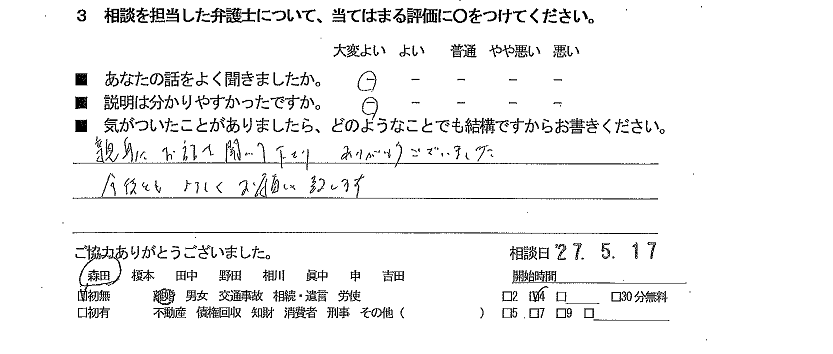 3 相談を担当した弁護士について、当てはまる評価に〇をつけてください。
大変よい よい 普通 やや悪い 悪い
■ あなたの話をよく聞きましたか。 − − − − −
■ 説明は分かりやすかったですか。 − − − − −
■ 気がついたことがありましたら、どのようなことでも結構ですからお書きください。
親身にお話を聞いて下さり ありがとうございました
今後とも よろしく お願い致します
ご協力ありがとうございました。 相談日 '27. 5. 17
森田 榎本 田中 野田 相川 眞中 申 吉田 開始時間
☑初無 離婚 男女 交通事故 相続・遺言 労使 □2 ☑4 □ □30分無料
□初有 不動産 債権回収 知財 消費者 刑事 その他 ( ) □5 □7 □9 □